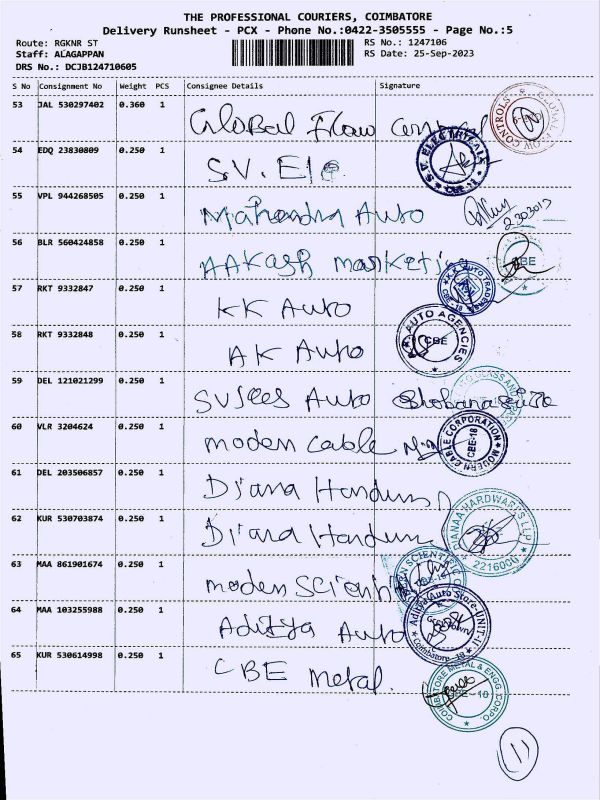 THE PROFESSIONAL COURIERS, COIMBATORE
Delivery Runsheet - PCX - Phone No.:0422-3505555 - Page No.:5
Route: RGKNR ST RS No.: 1247106
Staff: ALAGAPPAN RS Date: 25-Sep-2023
DRS No.: DCJB124710605
S No Consignment No Weight PCS Consignee Details Signature
53 JAL 530297402 0.360 1 Global Flow Control
54 EDQ 23830809 0.250 1 S.V. Ele
S.V. ELECTRICALS
55 VPL 944268505 0.250 1 Mahendra Auto
56 BLR 560424858 0.250 1 AAKash marketing
CBE
57 RKT 9332847 0.250 1 KK Auto
K.K. AUTO TRADERS
CBE-18
58 RKT 9332848 0.250 1 AK Auto
AUTO AGENCIES
CBE
59 DEL 121021299 0.250 1 Auto
60 VLR 3204624 0.250 1 modern cable
MODERN CABLE CORPORATION
CBE-18
61 DEL 203506857 0.250 1 Diana
62 KUR 530703874 0.250 1 Diana
DIANAA HARDWARES LLP
2216000
63 MAA 861901674 0.250 1 modern Scientific
64 MAA 103255988 0.250 1 Aditya Auto
Aditya Auto Store-UNIT-II
Coimbatore-18
65 KUR 530614998 0.250 1 CBE metal.
COIMBATORE METAL & ENGG CORPO.
CBE-18
11